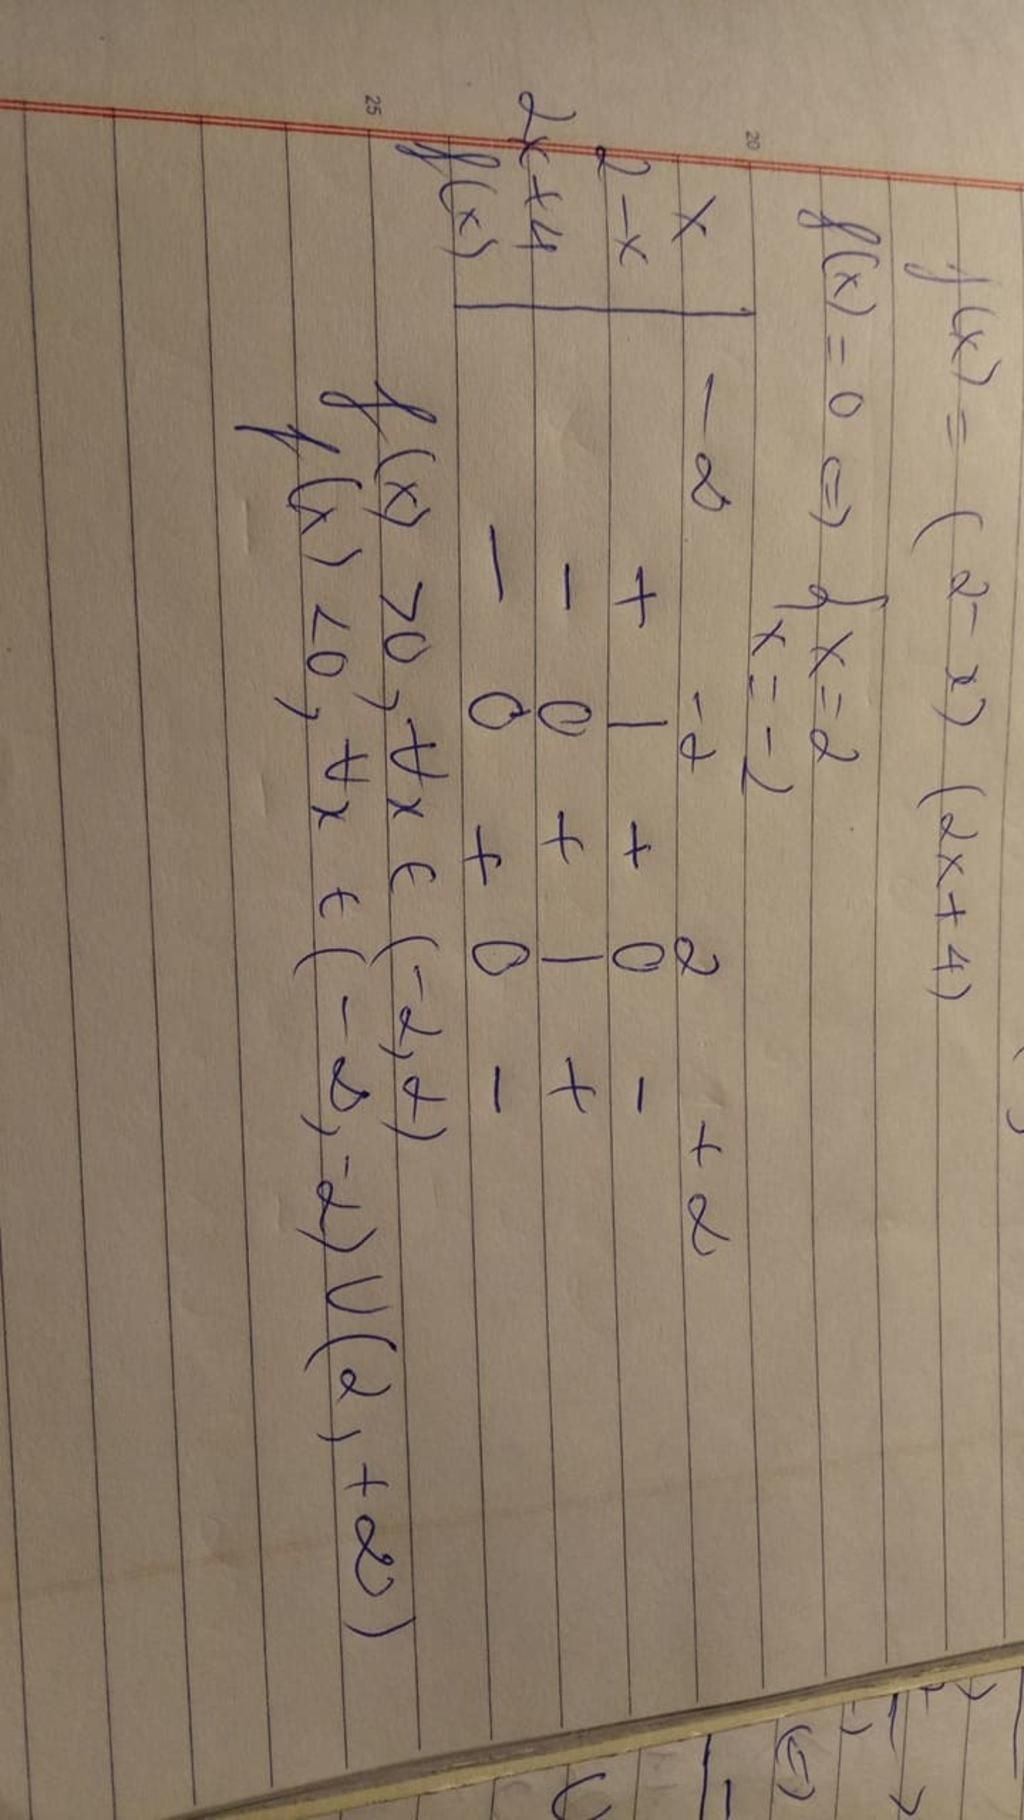 f(x) = (2-x) (2x+4)
f(x) = 0 ⇔ { x = 2
x = -2
20
x | -∞ -2 2 +∞
2-x | + | + 0 -
2x+4 | - 0 + | +
f(x) | - 0 + 0 -
25
f(x) >0, ∀x ∈ (-2,2)
f(x) <0, ∀x ∈ (-∞,-2) U (2, +∞)